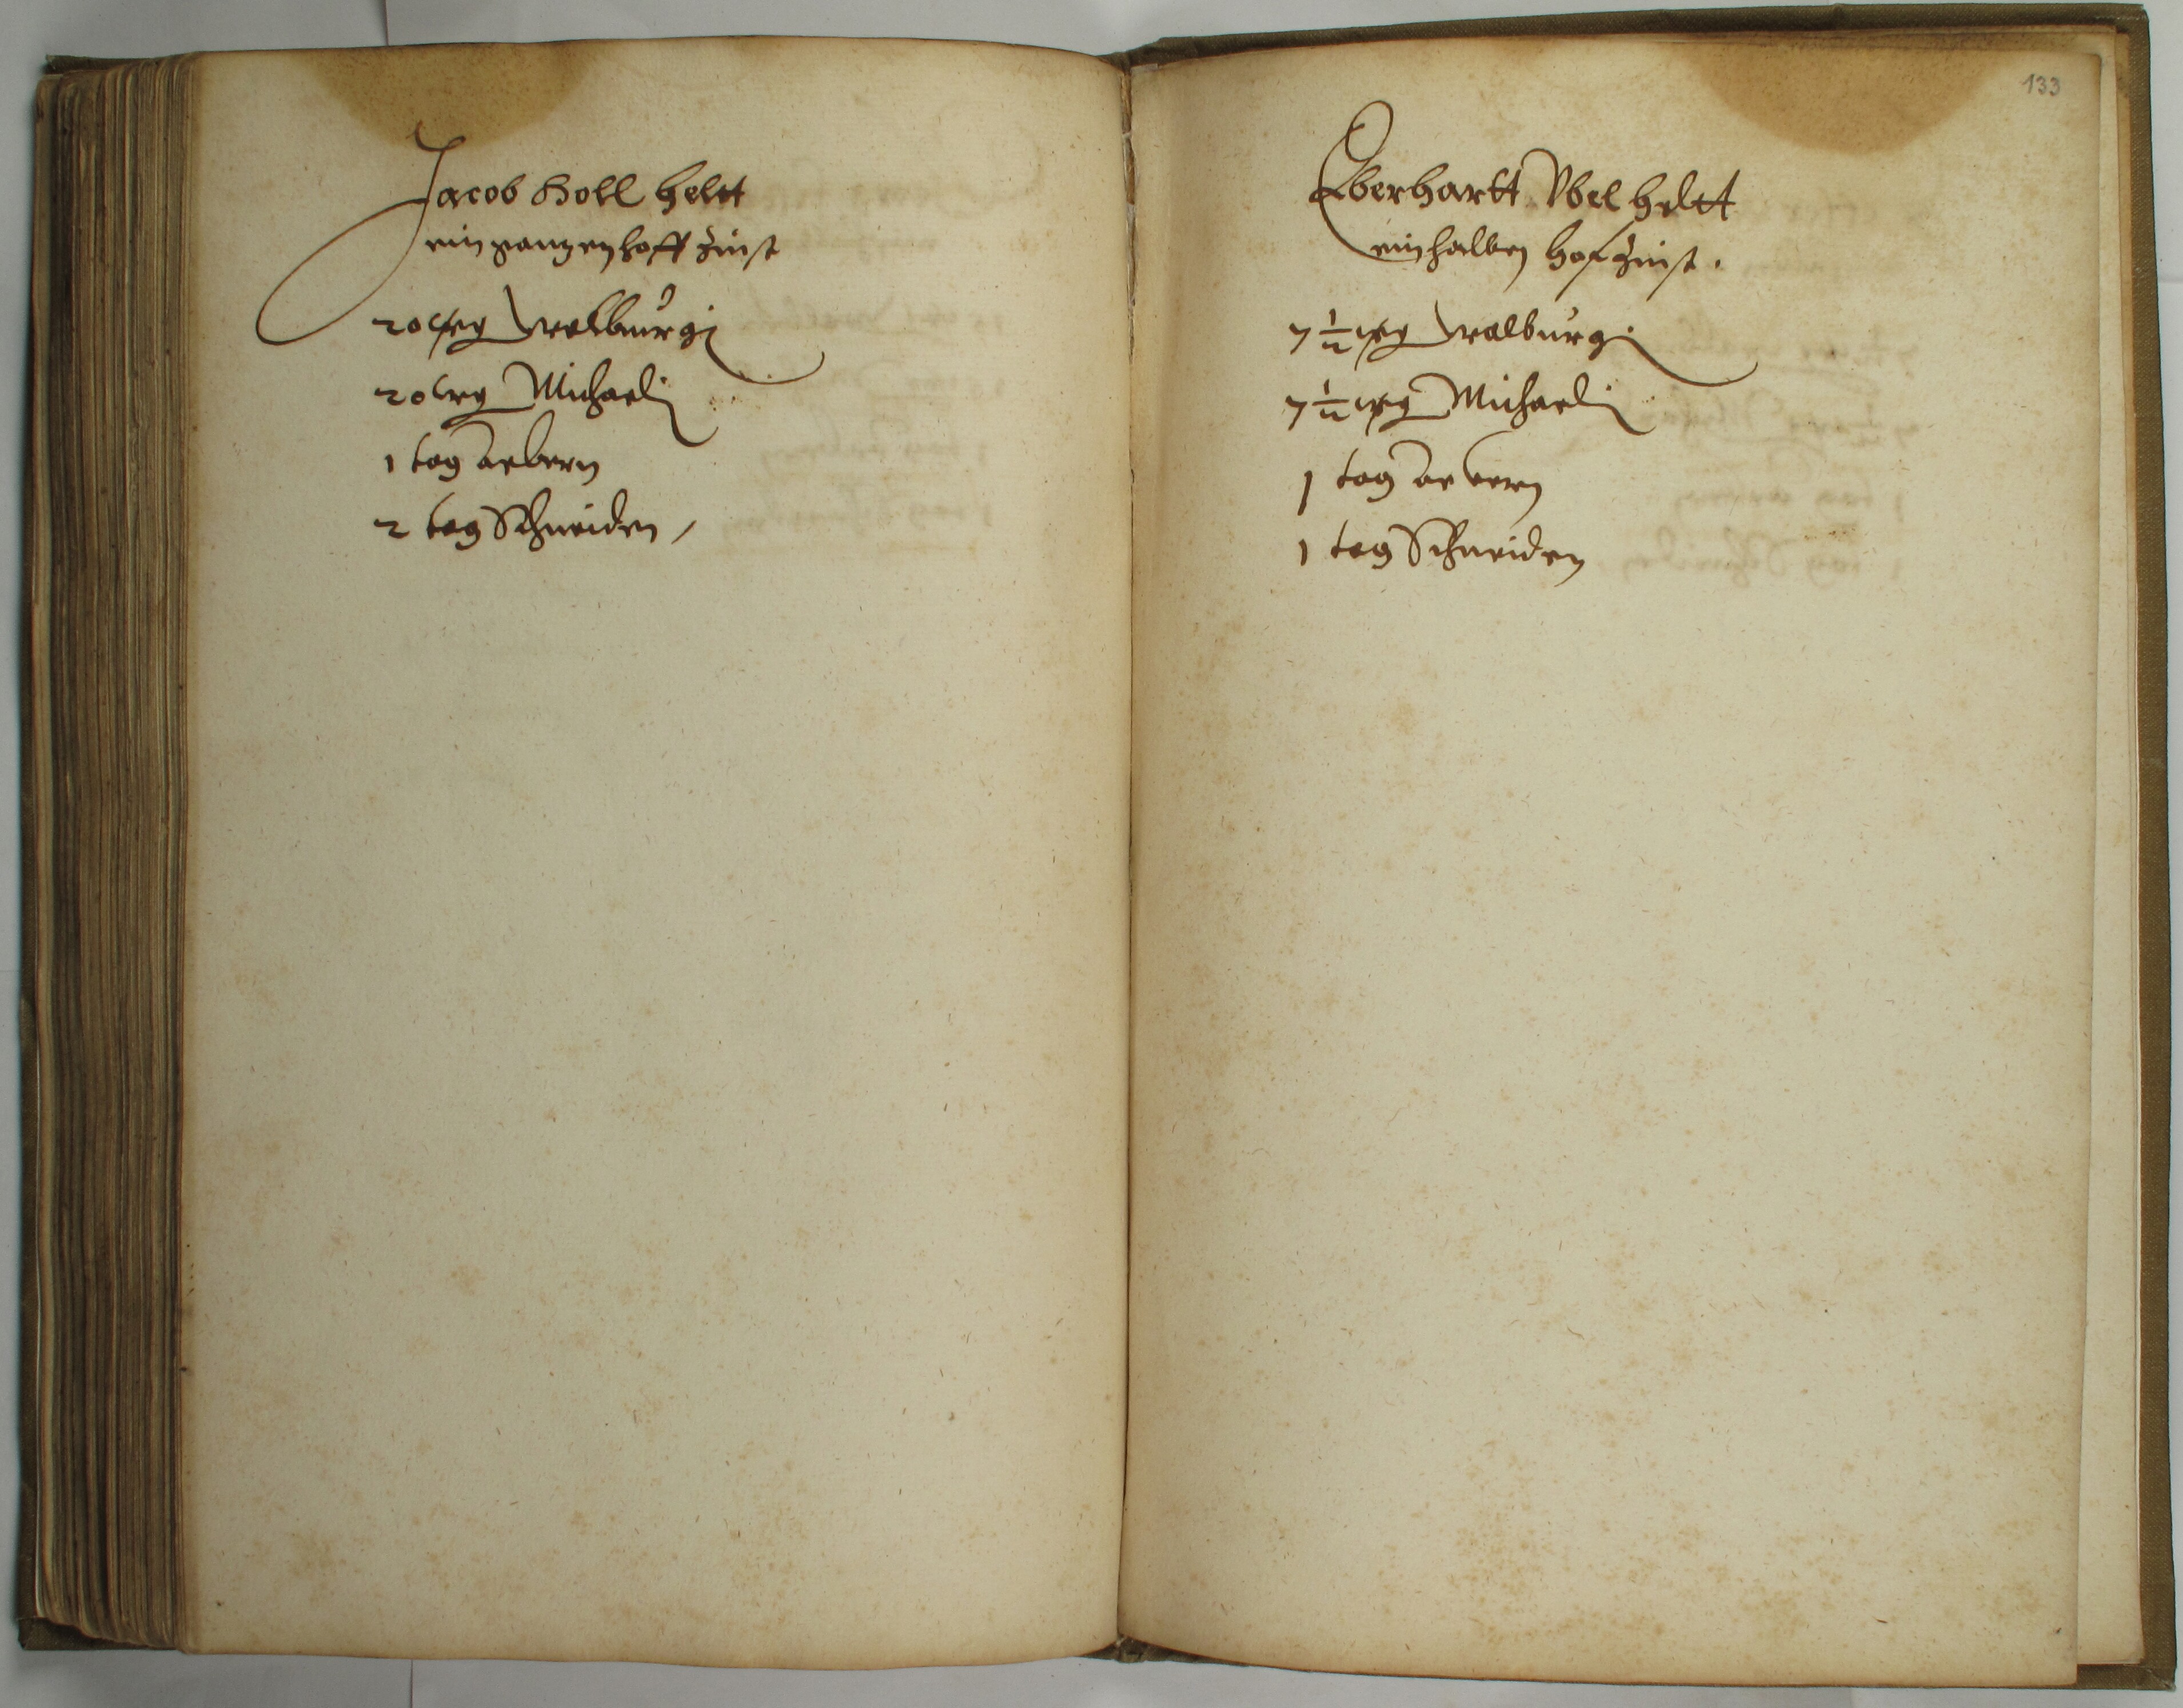 Jacob Holl heltt
ein gantzen hoff Zinst
20 gr Walburgi
20 gr Michaeli
1 tag
2 tag Schneiden /
133
Eberhartt Vbel heltt
ein halben hof Zinst .
7 1/2 gr Walburgi
7 1/2 gr Michaeli
1 tag
1 tag Schneiden